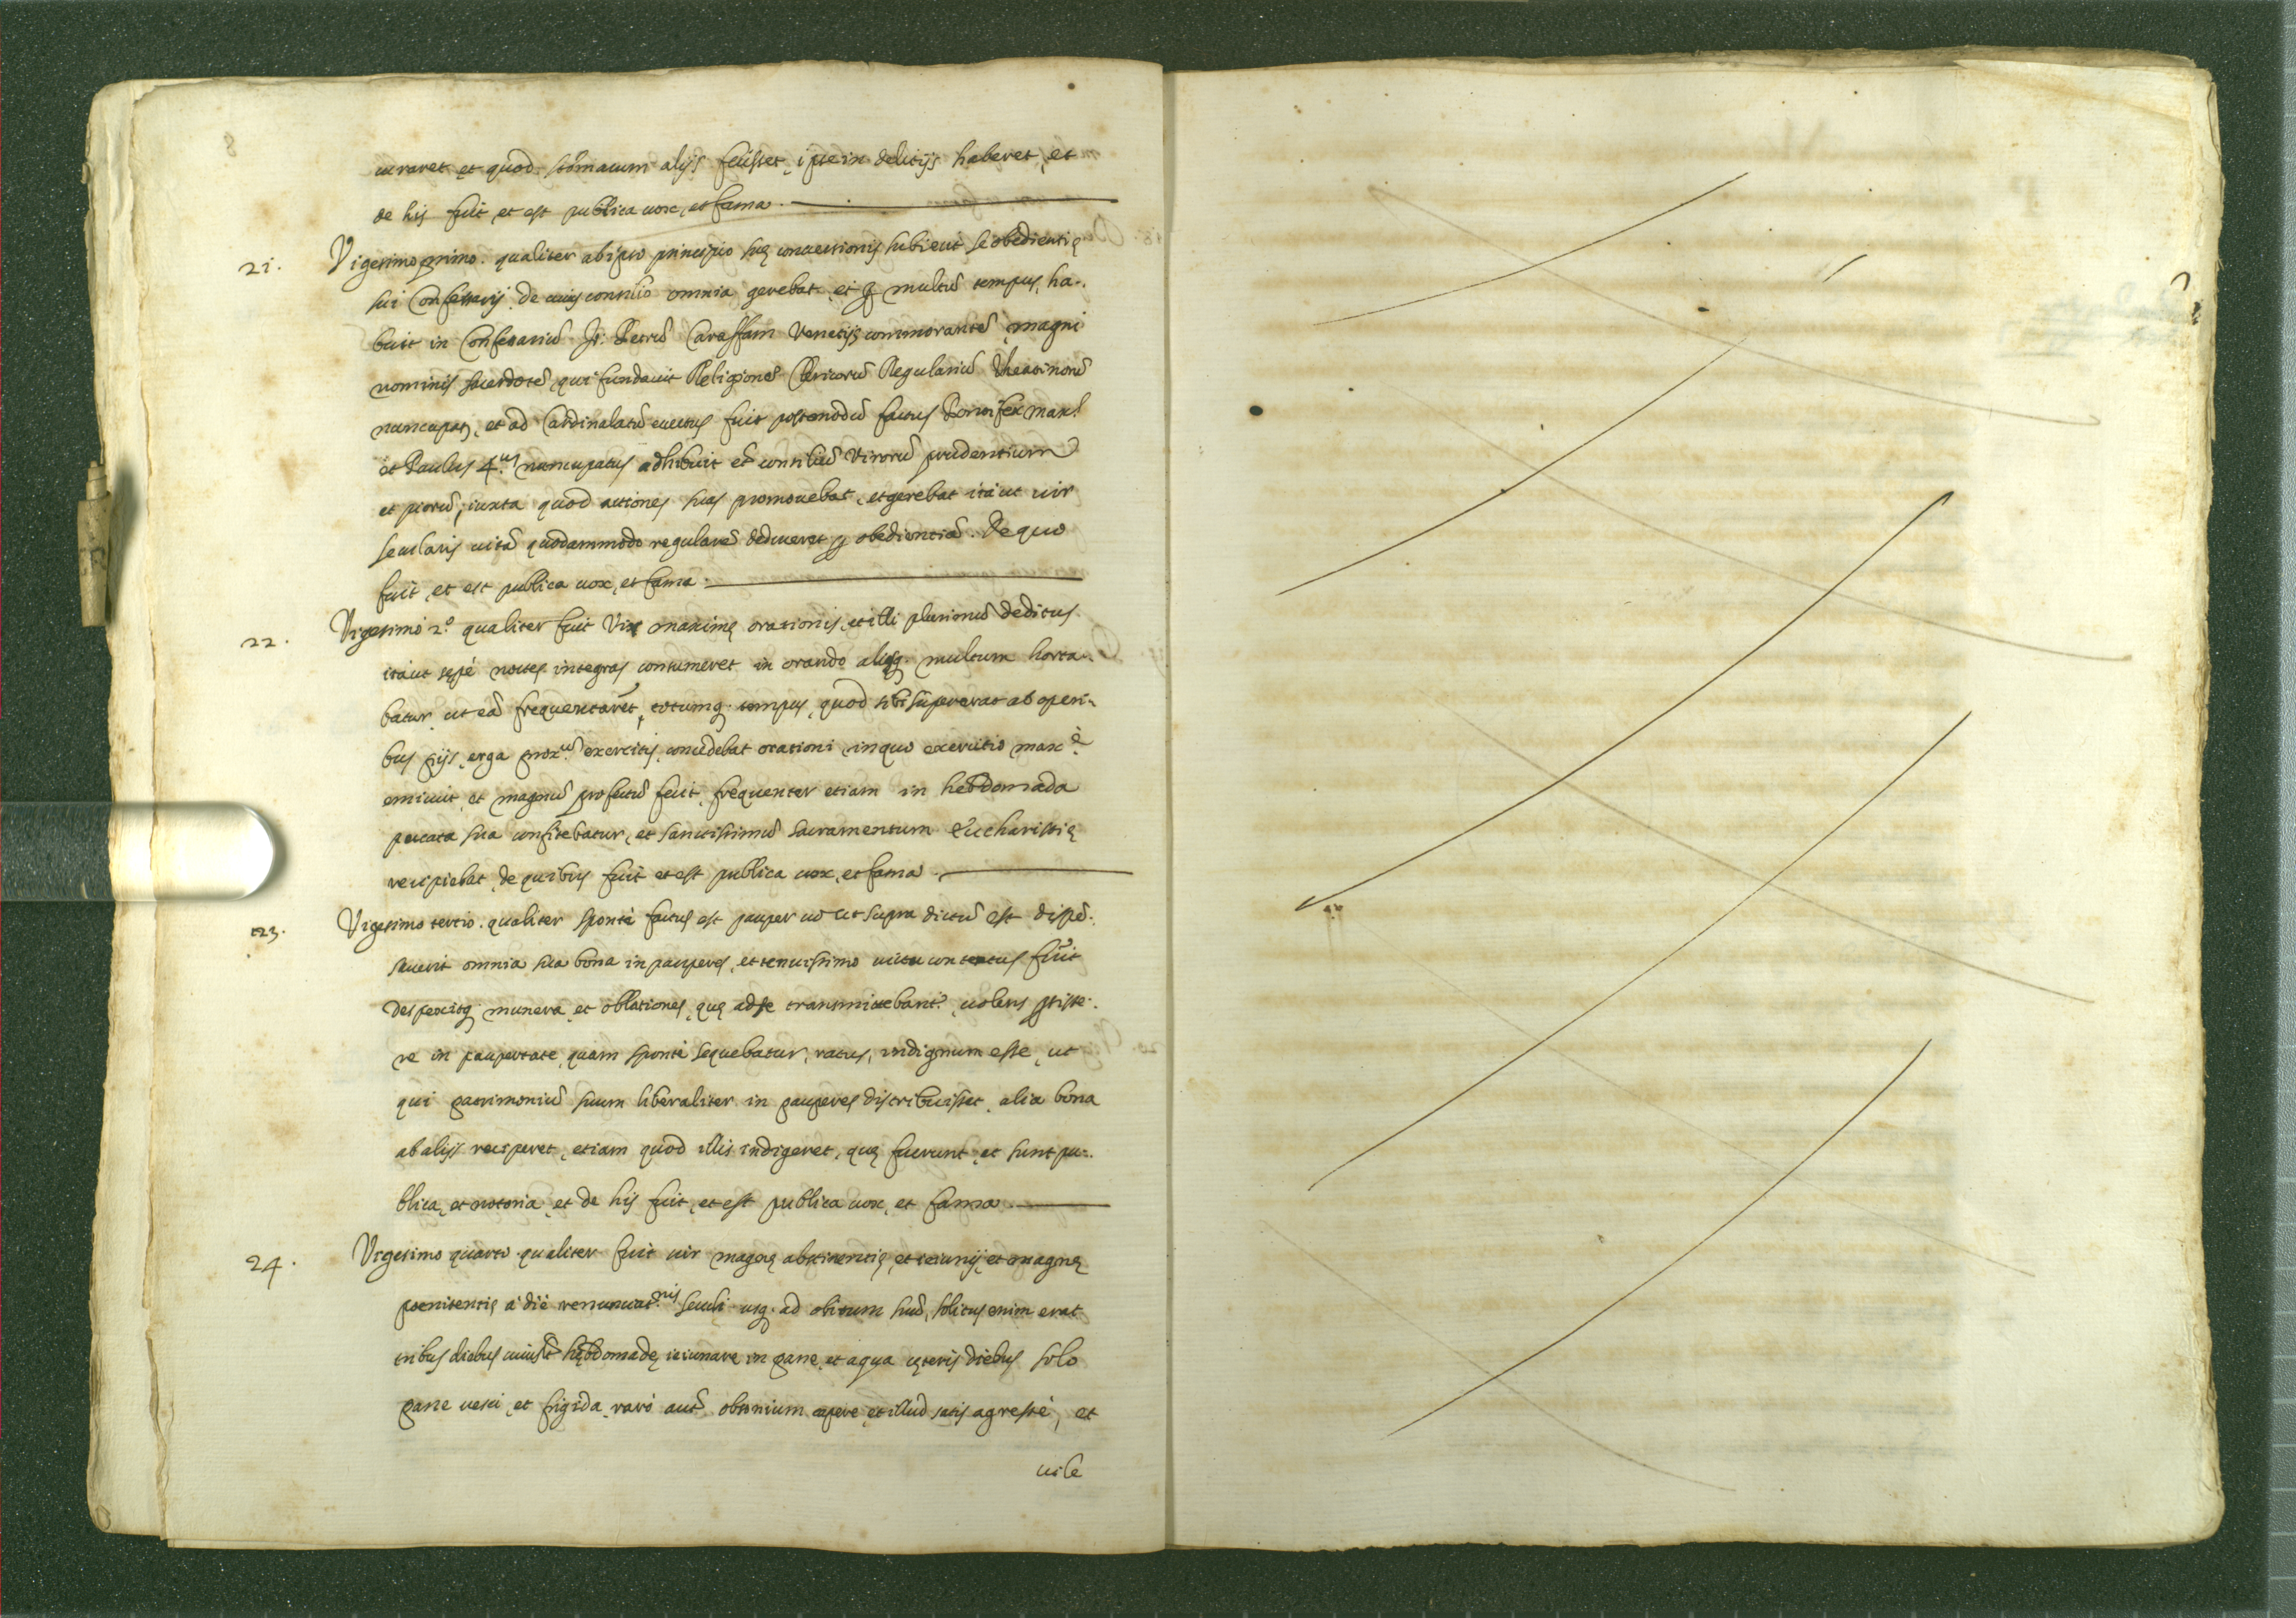 8
curaret et quod stomacum alijs fecisset, ipse in delitijs haberet, et
de his fuit, et est publica uox, et fama.
21. Vigesimo primo. qualiter ab ipso principio suę conuersionis subiecit se obedientię
sui Confessarij de cuius consilio omnia gerebat, et ꝑ multũ tempus, ha-
buit in Confessariũ Jo: Petrũ Caraffam Venetijs commorantẽ, magni
nominis sacerdotẽ, qui fundauit Religionẽ Clericorũ Regulariũ Theatinorũ
nuncupat, et ad Cardinalatũ euectus fuit postmodũ factus Pontifex max.
et Paulus 4.us nuncupatus adhibuit et consiliũ Virorũ prudentium
et piorũ, iuxta quod actiones suas promouebat, et gerebat itaut uir
secularis uitã quodammodo regularẽ deduceret ꝑ obedientiã. De quo
fuit, et est publica uox, et fama.
22. Vigesimo 2.º qualiter fuit Vir maximę orationis, et illi plurimũ deditus
itaut sępè noctes integras consumeret in orando aliosq. multum horta-
batur ut eã frequentarẽt, totumq. tempus, quod sibi supererat ab operi-
bus pijs, erga prox.ũ exercitis, concedebat orationi, in quo exercitio max.è
emicuit, et magnũ profectũ fecit, frequenter etiam in hebdomada
peccata sua confitebatur, et sanctissimũ sacramentum Eucharistię
recipiebat, de quibus fuit et est publica uox, et fama.
23. Vigesimo tertio. qualiter sponte factus est pauper cũ ut supra dictũ est dispẽ-
sauerit omnia sua bona in pauperes, et tenuissimo uictu contentus fuit
despexitq. munera, et oblationes, quę ad se transmittebant.r, uolens ꝑsiste-
re in paupertate, quam sponte sequebatur, ratus, indignum esse, ut
qui patrimoniũ suum liberaliter in pauperes distribuisset, alia bona
ab alijs reciperet, etiam quod illis indigeret, quę fuerunt, et sunt pu-
blica, et notoria, et de his fuit, et est publica uox, et fama.
24. Vigesimo quarto. qualiter fuit uir magnę abstinentię, et ieiunij, et magnę
poenitentię à die renunciat.nis seculi usq. ad obitum suũ, solitus enim erat
tribus diebus cuiuslt hębdomadę ieiunare in pane, et aqua cęteris diebus solo
pane uesci, et frigida, raro autẽ obsonium capere, et illud satis agreste, et
uile